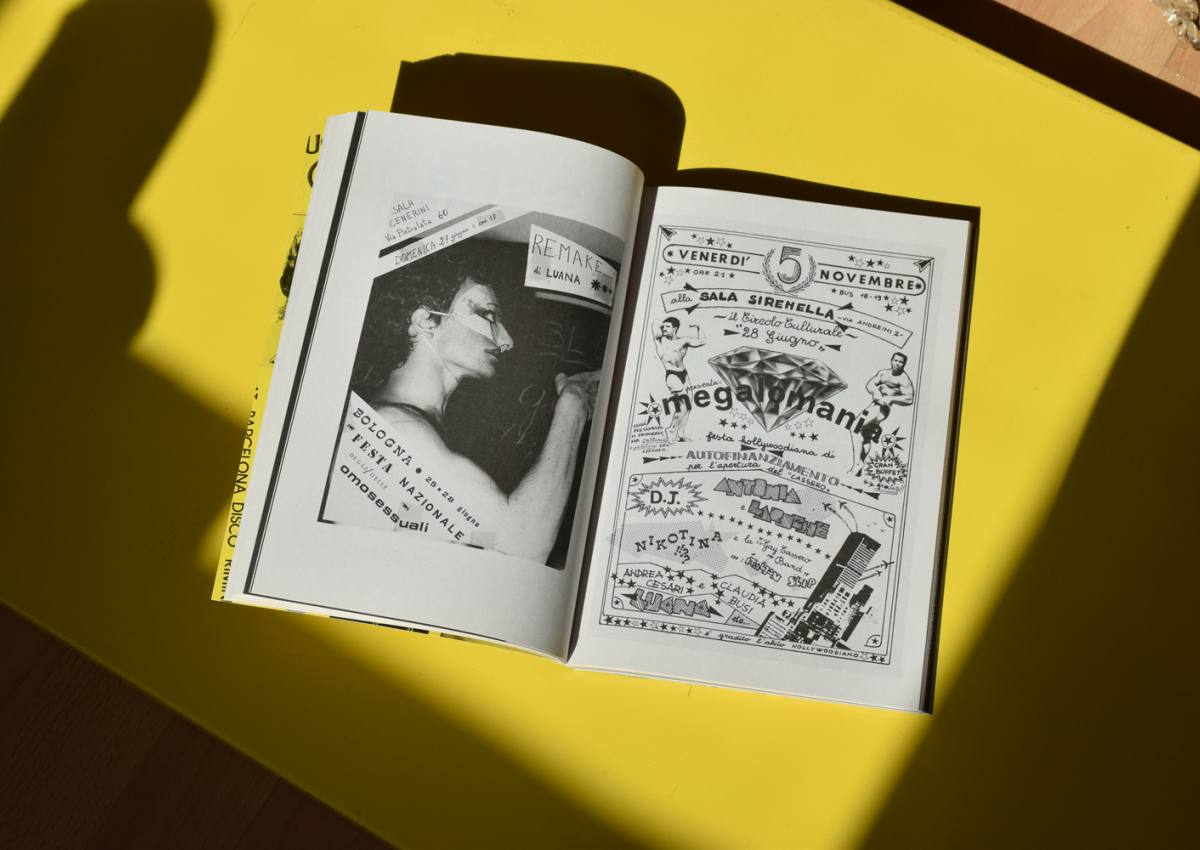 SALA
CENERINI
Via Pietralata 60
DOMENICA 27 giugno
REMAKE
di LUANA
BOLOGNA • 25 • 28 giugno
FESTA NAZIONALE
DEGLI/DELLE
omosessuali
BARCELONA DISCO
VENERDI' 5 NOVEMBRE
ORE 21
BUS 18-19
alla SALA SIRENELLA -VIA ANDREINI 2-
~il Circolo Culturale~
"28 Giugno"
presenta:
megalomania
festa hollywoodiana di
AUTOFINANZIAMENTO
per l'apertura del "CASSERO"
GRAN
BUFFET
D.J.
ANTONIA
LAROCHE
NIKOTINA
!!?
e la "Gay Cassero
Band"
in:
ITALIAN SLIP
ANDREA
CESARI e CLAUDIA
BUSI
LUANA
etc..
è gradito l'abito HOLLYWOODIANO